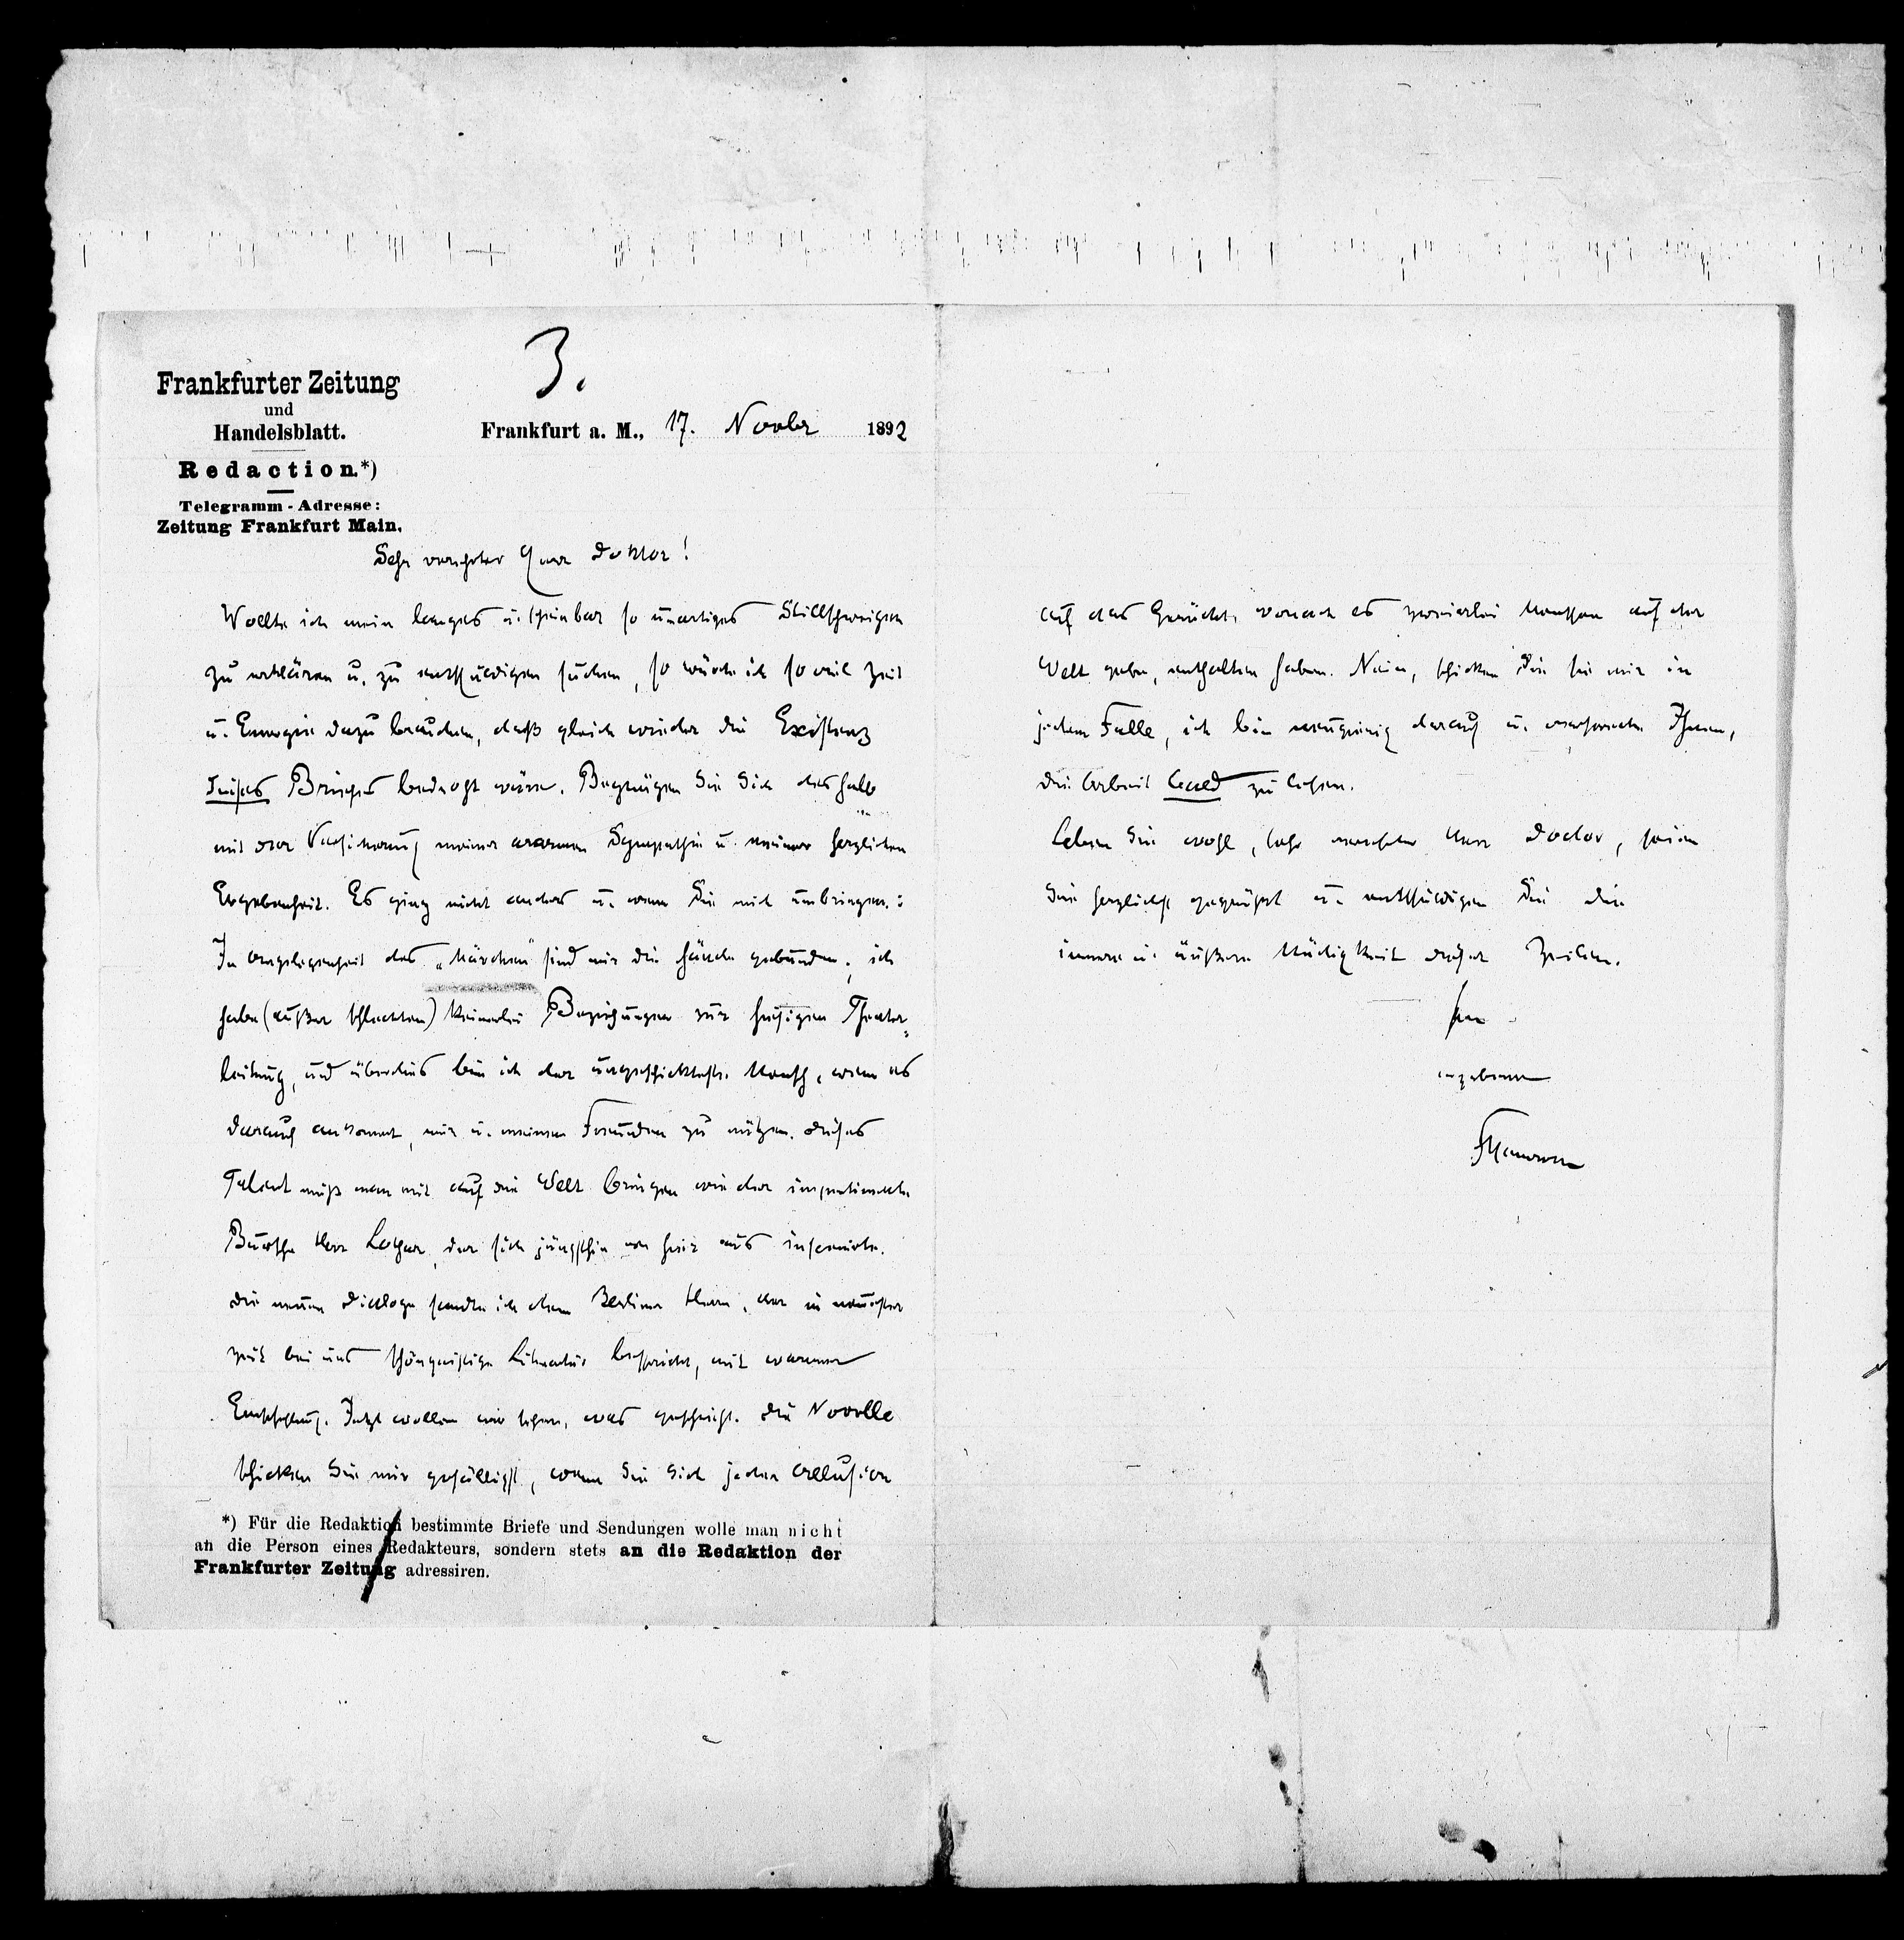 3.
Frankfurter Zeitung
und
Handelsblatt.
Redaction.*)
Telegramm-Adresse:
Zeitung Frankfurt Main.
Frankfurt a. M., 17. Novbr 1892
Sehr verehrter Herr Doktor!
Wollte ich mein langes u. scheinbar so unartiges Stillschweigen
zu erklären u. zu entschuldigen suchen, so würde ich so viel Zeit
u. Energie dazu brauchen, daß gleich wieder die Existenz
dieses Briefes bedroht wäre. Begnügen Sie Sich deshalb
mit der Versicherung meiner warmen Sympathie u. meiner herzlichen
Ergebenheit. Es ging nicht anders u. wenn Sie mich umbringen.:
In Angelegenheit des „Märchen" sind mir die Hände gebunden; ich
habe (außer schlechten) keinerlei Beziehungen zur hiesigen Theater-
leitung, und überdies bin ich der ungeschickteste Mensch, wenn es
darauf ankommt, mir u. meinen Freunden zu nützen. Dieses
Talent muß man mit auf die Welt bringen wie der impertinente
Bursche Herr Lothar, der sich jüngsthin von hier aus inscenirte.
Die neuen Dialoge sandte ich dem Berliner Herrn, der in neuester
Zeit bei uns schöngeistige Literatur bespricht, mit warmer
Empfehlung. Jetzt wollen wir sehen, was geschieht. Die Novelle
schicken Sie mir gefälligst, wenn Sie Sich jeder Allusion
*) Für die Redaktion bestimmte Briefe und Sendungen wolle man nicht
an die Person eines Redakteurs, sondern stets an die Redaktion der
Frankfurter Zeitung adressiren.
auf das Gerücht, wonach es zweierlei Menschen auf der
Welt gebe, enthalten haben. Nein, schicken Sie sie mir in
jedem Falle, ich bin neugierig darauf u. verspreche Ihnen,
die Arbeit bald zu lesen.
Leben Sie wohl, sehr verehrter Herr Doctor, seien
Sie herzlichst gegrüßt u. entschuldigen Sie die
innere u. äußere Müdigkeit dieser Zeilen.
Ihr
ergebener
FMamroth